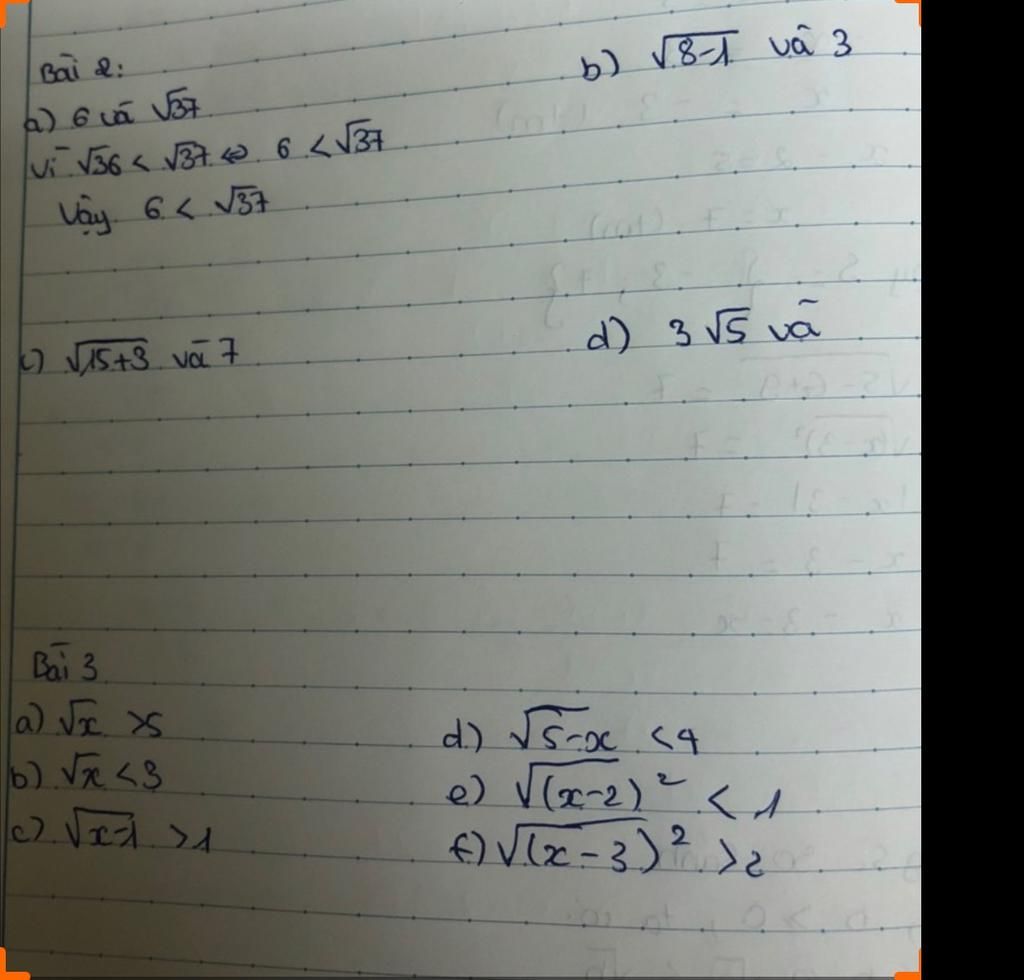 Bài 2:
a) 6 và √37
b) √8-1 và 3
Vì √36 < √37 ⇔ 6 < √37
Vậy 6 < √37
c) √15+3 và 7
d) 3√5 và
Bài 3
a) √x >5
b) √x <3
c) √x-1 >1
d) √5-x <4
e) √(x-2)² < 1
f) √(x-3)² >2